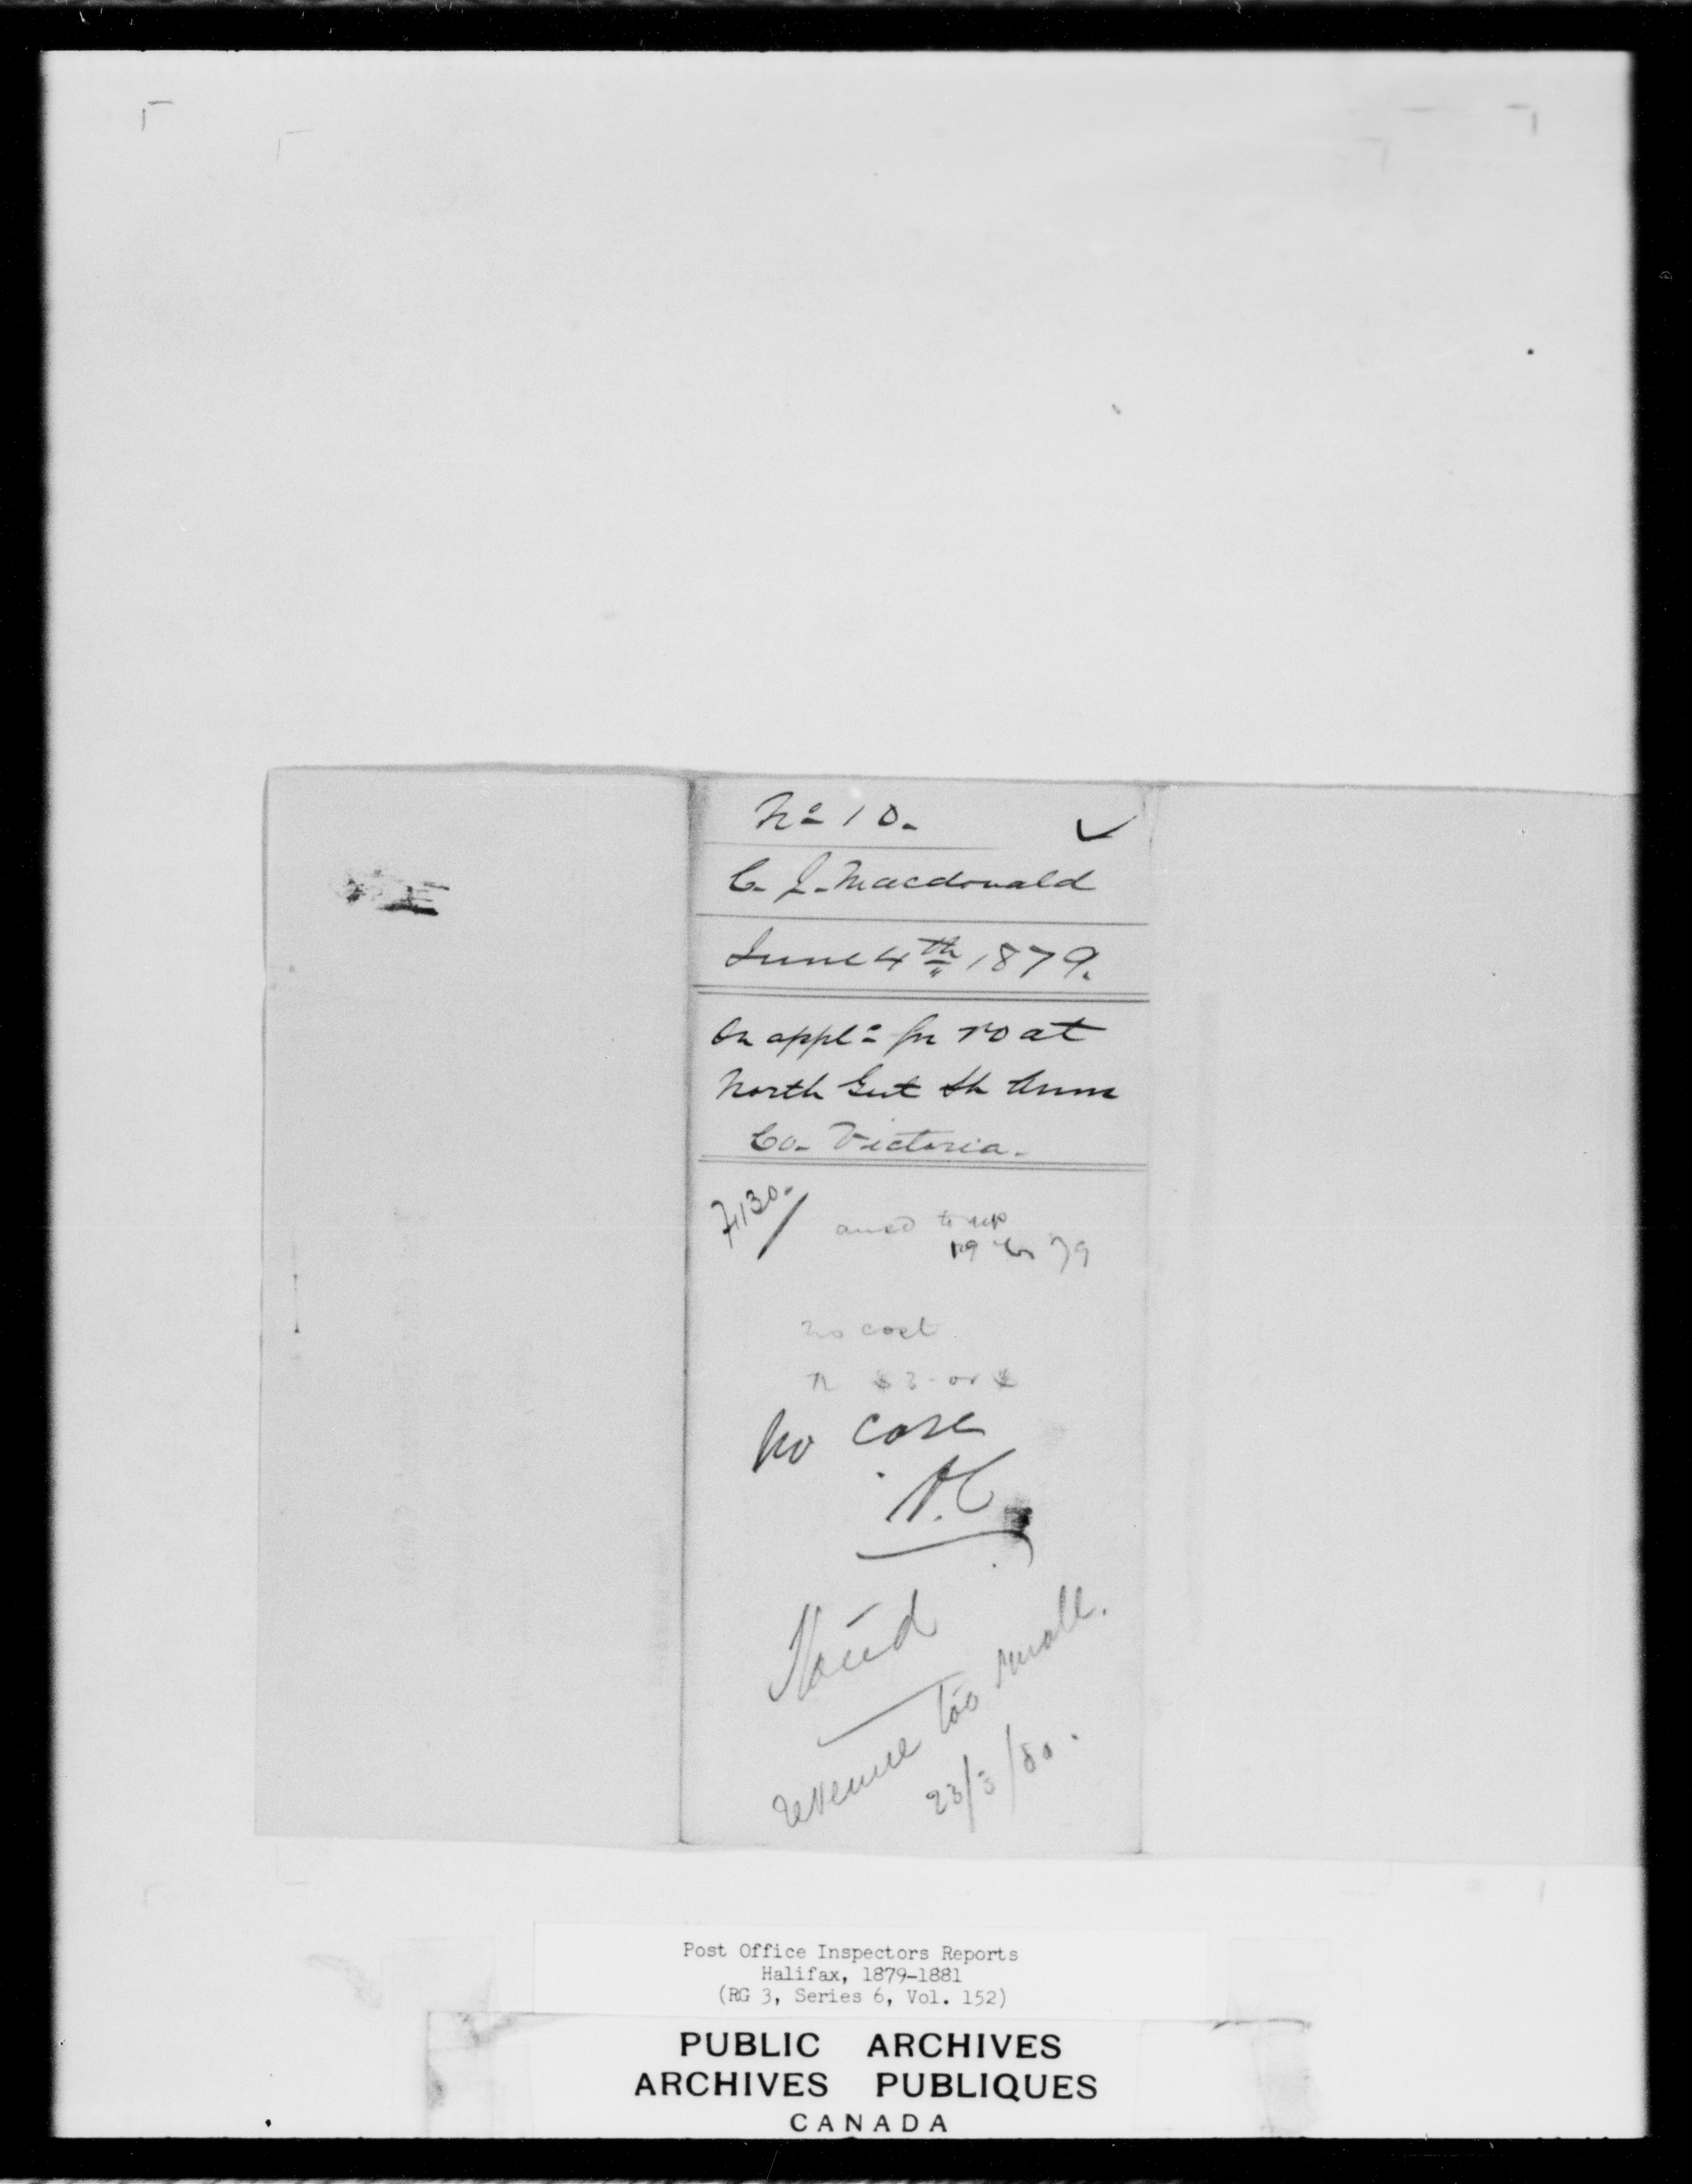 No 10. ✓
C. J. Macdonald
June 4th 1879.
On appln for PO at
North Gut St Anns
Co. Victoria.
7130.
19 79
no cost
$3 or $
No case
A.C
revenue too small.
23/3/80.
Post Office Inspectors Reports
Halifax, 1879-1881
(RG 3, Series 6, Vol. 152)
PUBLIC ARCHIVES
ARCHIVES PUBLIQUES
CANADA